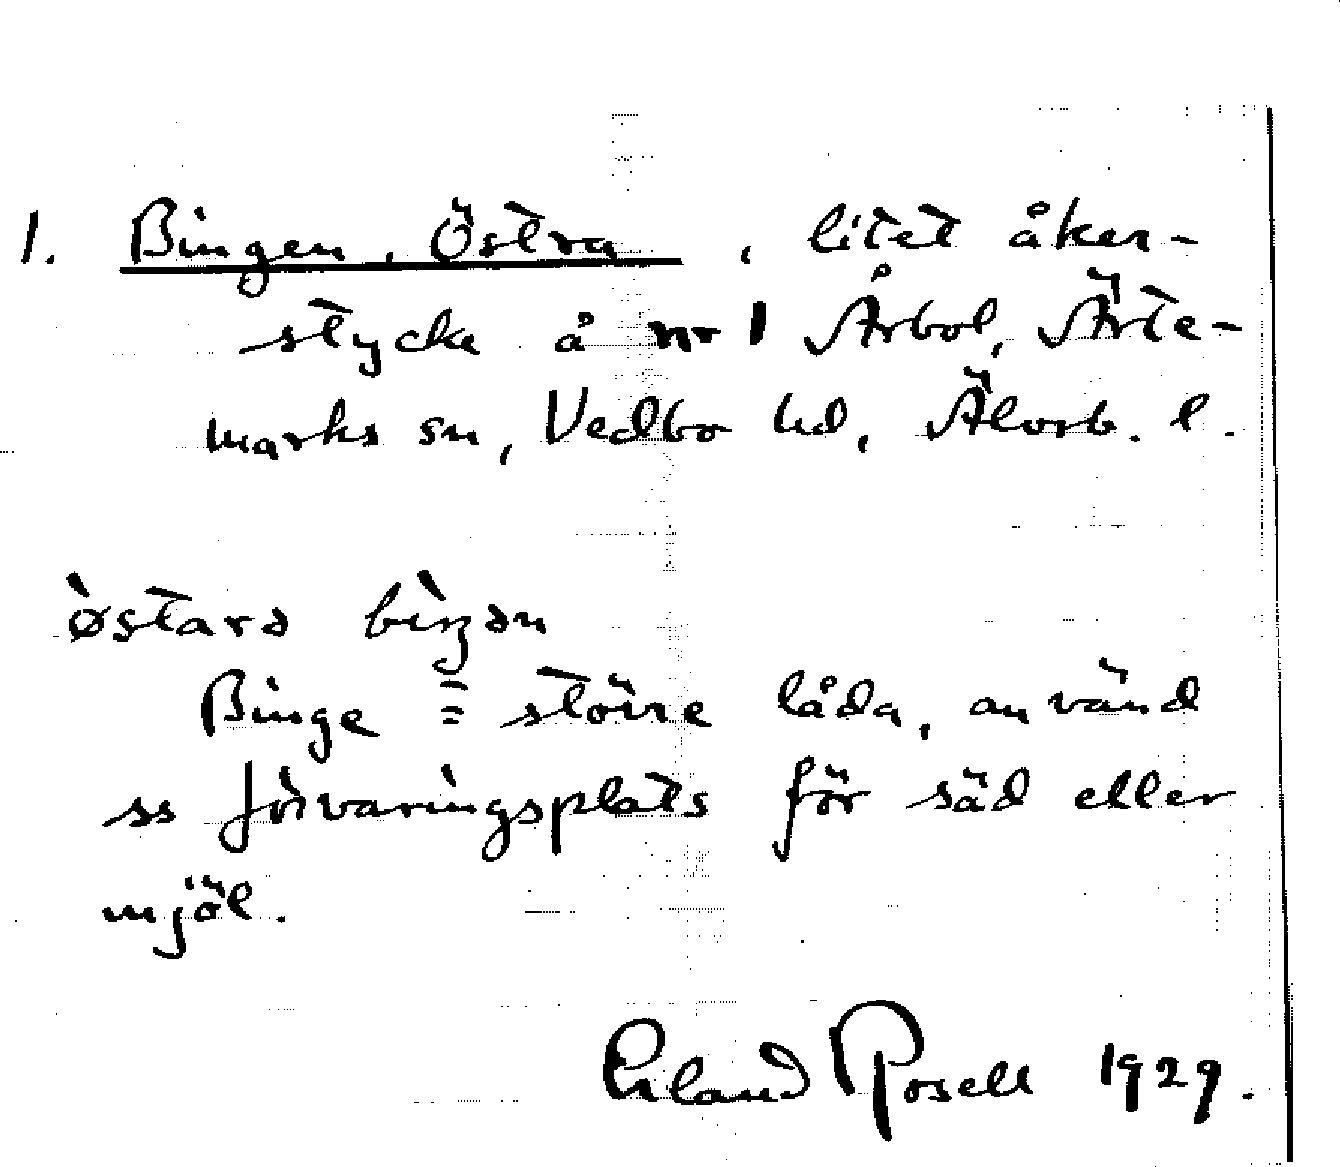 1. Bingen, Östra, litet åker-
stycke å nr 1 Årbol, Ärte-
marks sn, Vedbo hd, Älvsb. l.
ø̀stara bìŋən
Binge = större låda, använd
ss förvaringsplats för säd eller
mjöl.
Erland Rosell 1929.